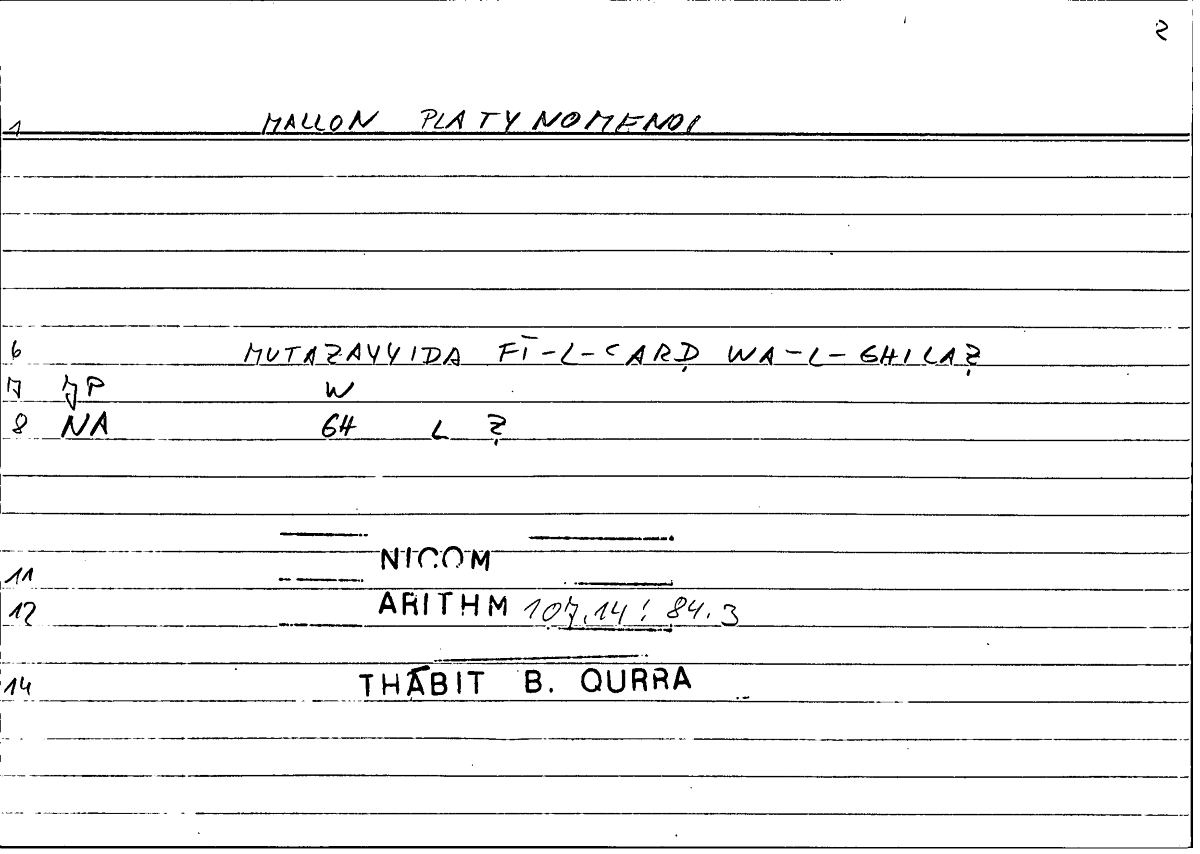 2
1 MALLON PLATYNOMENOI
6 MUTAZAYYIDA FĪ-L-ʿARḌ WA-L-GHILAẒ
7 JP W
8 NA GH L Ẓ
11 NICOM
12 ARITHM 107.14 : 84.3
14 THĀBIT B. QURRA